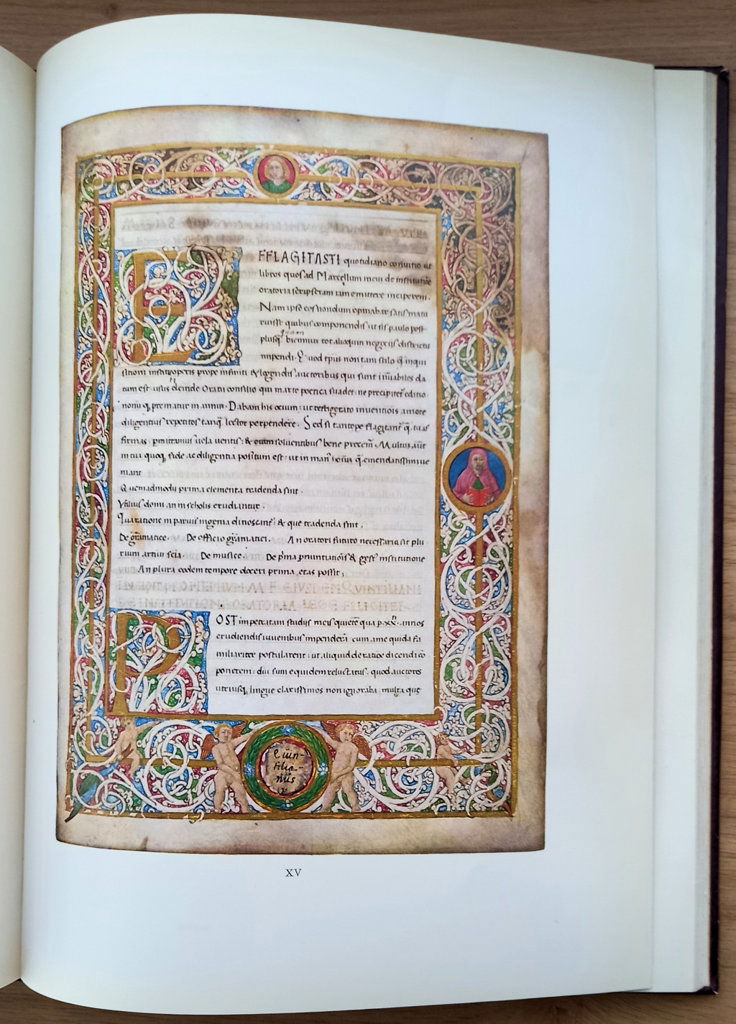 EFFLAGITASTI quotidiano conuitio ut
libros quos ad Marcellum meū de institutione
oratoria scripseram iam emittere inciperem.
Nam ipse eos nondum opinabar satis matu
ruisse quibus componendis ut scis paulo post
plusq̄ biennius tot alioquin negociis districtus
impendi. Quod tp̄us non tam stilo q̄
operis prope infiniti & legendis auctoribus qui sunt
tum est. usus deinde Oratii consilio qui in arte poetica suadet ne precipitet editio
Dabam his ocium. ut refrigerato inuentionis amore
diligentius repetitos tanq̄ lector perpenderē. Sed si tantope flagitant̄ q̄ tu as
firmas. permittamus uela uentis & oram soluentibus bene precem̄. Multū aūt
in tua quoq; fide ac diligentia positum est. ut in man
mant
Quemadmodū prima elementa tradenda sint.
Vtilius domi an in scholis erudiantur.
Qua ratione in paruis ingenia dinoscant̄ & que tradenda sint.
De grāmatice. De officio grāmatici. An oratori futuro necessaria sit plu
rium artiū scīa. De musice. De pronuntiationis & gest institutione
An plura eodem tempore doceri prima etas possit.
POST impetratam studiis meis quietē qua p. xxᵗⁱ annos
erudiendis iuuenibus impenderā. cum a me quidā fa
miliariter postularent. ut aliquid de ratione dicendi cō
ponerem. diu sum equidem reluctatus. quod auctores
utriusq; lingue clarissimos non ignoraba. multa que
Quin-
tilia-
nus
XV